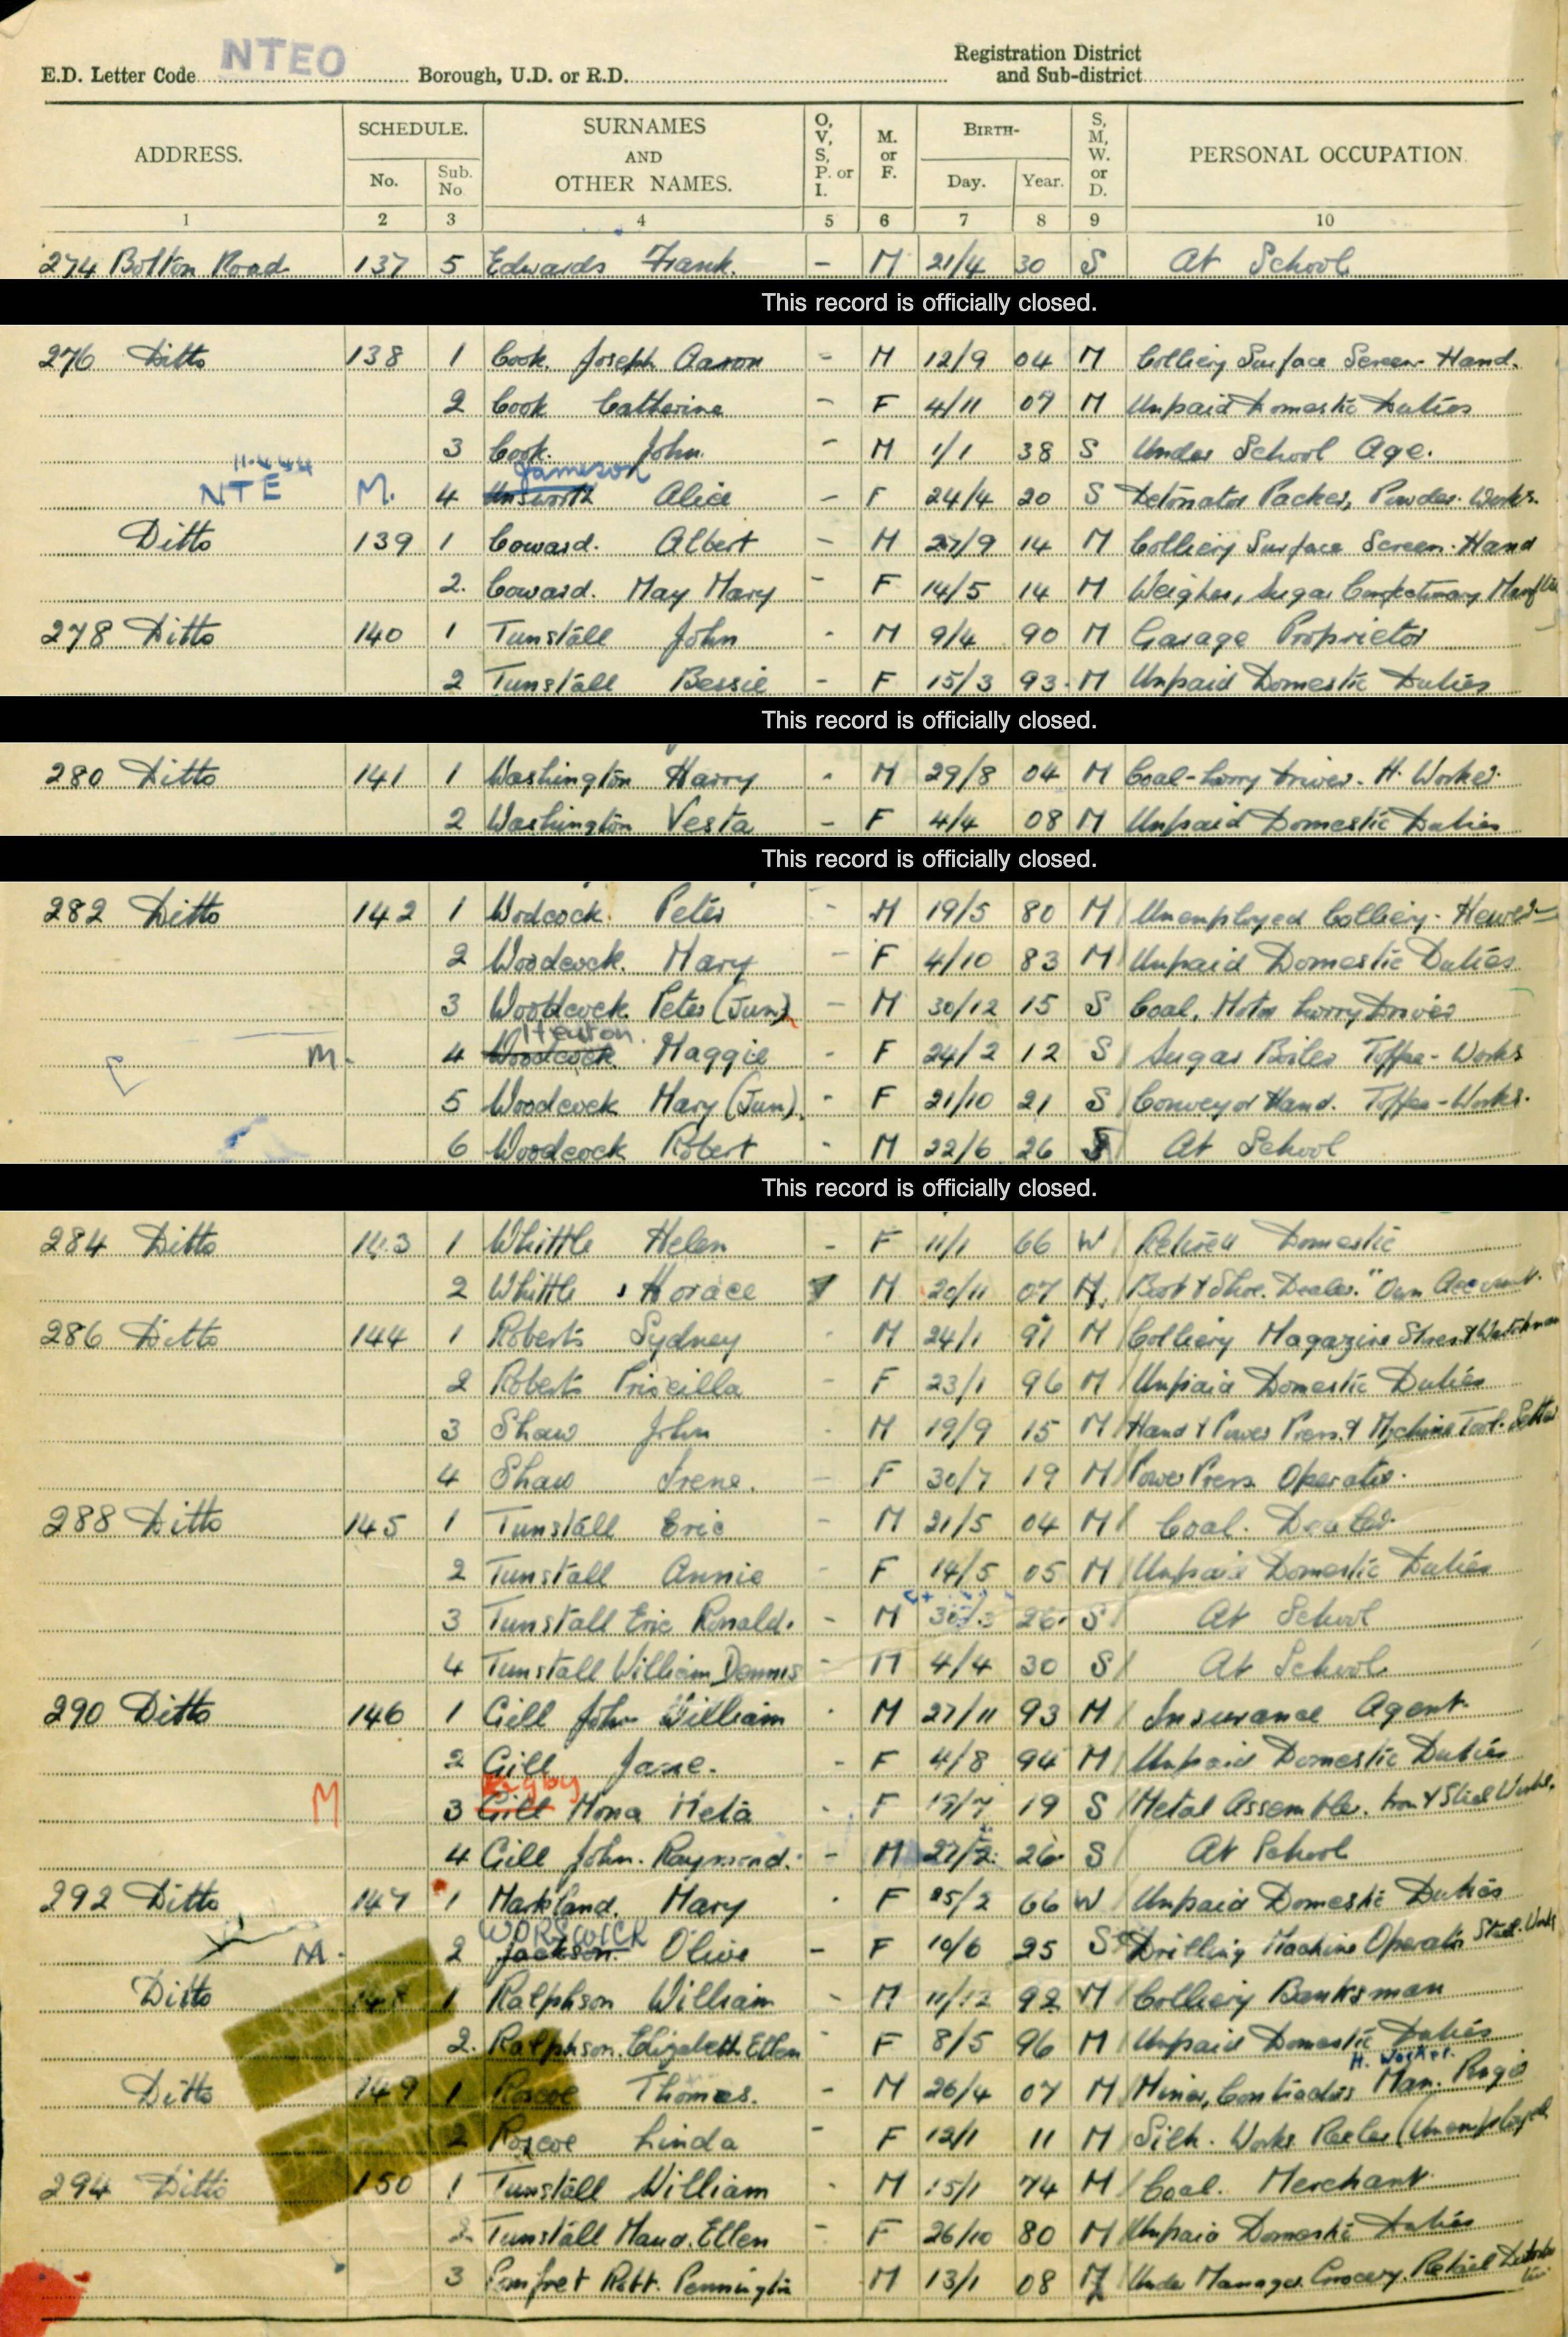 NTEO
E.D. Letter Code Borough, U.D. or R.D. Registration District and Sub-district
ADDRESS. SCHEDULE. No. Sub. No. SURNAMES AND OTHER NAMES. O, V, S, P. or I. M. or F. BIRTH- Day. Year. S, M, W. or D. PERSONAL OCCUPATION.
1 2 3 4 5 6 7 8 9 10
274 Bolton Road 137 5 Edwards Frank. - M 21/4 30 S At School
This record is officially closed.
276 Ditto 138 1 Cook. Joseph Aaron - M 12/9 04 M Colliery Surface Screen Hand.
2 Cook Catherine - F 4/11 07 M Unpaid Domestic Duties
3 Cook. John. - M 1/1 38 S Under School Age.
11.4.44 Jameson
NTE M. 4 Unsworth Alice - F 24/4 20 S Detonator Packer, Powder Works.
Ditto 139 1 Coward. Albert - M 27/9 14 M Colliery Surface Screen. Hand
2. Coward. May Mary - F 14/5 14 M Weigher, Sugar Confectionary
278 Ditto 140 1 Tunstall John - M 9/4 90 M Garage Proprietor
2 Tunstall Bessie - F 15/3 93 M Unpaid Domestic Duties
This record is officially closed.
280 Ditto 141 1 Washington Harry - M 29/8 04 M Coal-Lorry Driver. H. Worker.
2 Washington Vesta - F 4/4 08 M Unpaid Domestic Duties
This record is officially closed.
282 Ditto 142 1 Wodcock. Peter - M 19/5 80 M Unemployed Colliery. Hewer
2 Woodcock. Mary - F 4/10 83 M Unpaid Domestic Duties
3 Woodcock. Peter (Jun) - M 30/12 15 S Coal. Motor Lorry Driver
Heaton.
M. 4 Woodcock Maggie - F 24/2 12 S Sugar Boiler Toffee-Works
5 Woodcock Mary (Jun). - F 21/10 21 S Conveyor Hand. Toffee-Works.
6 Woodcock Robert - M 22/6 26 S At School
This record is officially closed.
284 Ditto 143 1 Whittle Helen - F 11/1 66 W Retired Domestic
2 Whittle Horace M 20/11 07 M. Boot & Shoe. Dealer. "Own Account.
286 Ditto 144 1 Roberts Sydney - M 24/1 91 M Colliery Magazine Stores & Watchman
2 Roberts Priscilla - F 23/1 96 M Unpaid Domestic Duties
3 Shaw John - M 19/9 15 M Hand & Power Press. & Machine Tool. Setter
4 Shaw Irene. - F 30/7 19 M Power Press Operator.
288 Ditto 145 1 Tunstall Eric - M 21/5 04 M Coal. Dealer.
2 Tunstall Annie - F 14/5 05 M Unpaid Domestic Duties
3 Tunstall Eric Ronald. - M 26. S At School
4 Tunstall William Dennis - M 4/4 30 S At School
290 Ditto 146 1 Gill John William - M 27/11 93 M Insurance Agent
2 Gill Jane. - F 4/8 94 M Unpaid Domestic Duties
Rigby
M 3 Gill Mona Meta - F 19/7 19 S Metal Assembler. Iron & Steel Works.
4 Gill John. Raymond. - M 27/2 26 S At School
292 Ditto 147 1 Markland. Mary - F 25/2 66 W Unpaid Domestic Duties
WORSWICK
M. 2 Jackson. Olive - F 10/6 25 S Drilling Machine Operator Steel. Works
Ditto 148 1 Ralphson William - M 11/12 92 M Colliery Banksman
2. Ralphson. Elizabeth Ellen - F 8/5 96 M Unpaid Domestic Duties
H. Worker.
Ditto 149 1 Roscoe Thomas. - M 26/4 07 M Miner, Contractor Man.
2 Roscoe Linda - F 12/1 11 M Silk. Works Reeler (Unemployed
294 Ditto 150 1 Tunstall William - M 15/1 74 M Coal. Merchant
2 Tunstall Maud. Ellen - F 26/10 80 M Unpaid Domestic Duties
3 Pomfret Robt. Pennington M 13/1 08 M Under Manager. Grocery. Retail